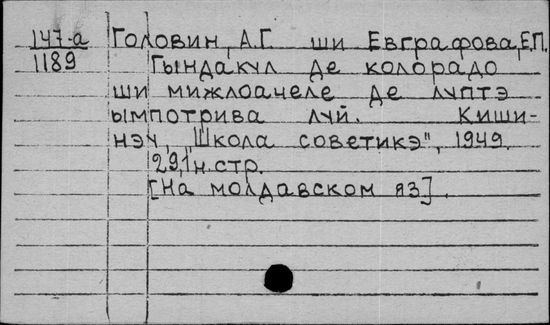 147-а Головин, А.Г. ши Евграфова, Е.П.
1189 Гындакул де колорадо
ши мижлоачеле де луптэ
ымпотрива луй. Киши-
нэу, "Школа советикэ", 1949.
29,1 н.стр.
[На молдавском яз].